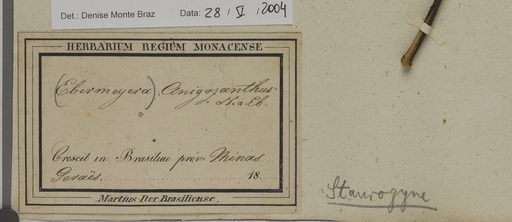 Det.: Denise Monte Braz Data: 28 / V / 2004
HERBARIUM REGIUM MONACENSE
(Ebermeyera) Anigozanthus
N. a. Eb.
Crescit in Brasiliae prov. Minas
Geraës. 18
Martius Iter Brasiliense.
Staurogyne